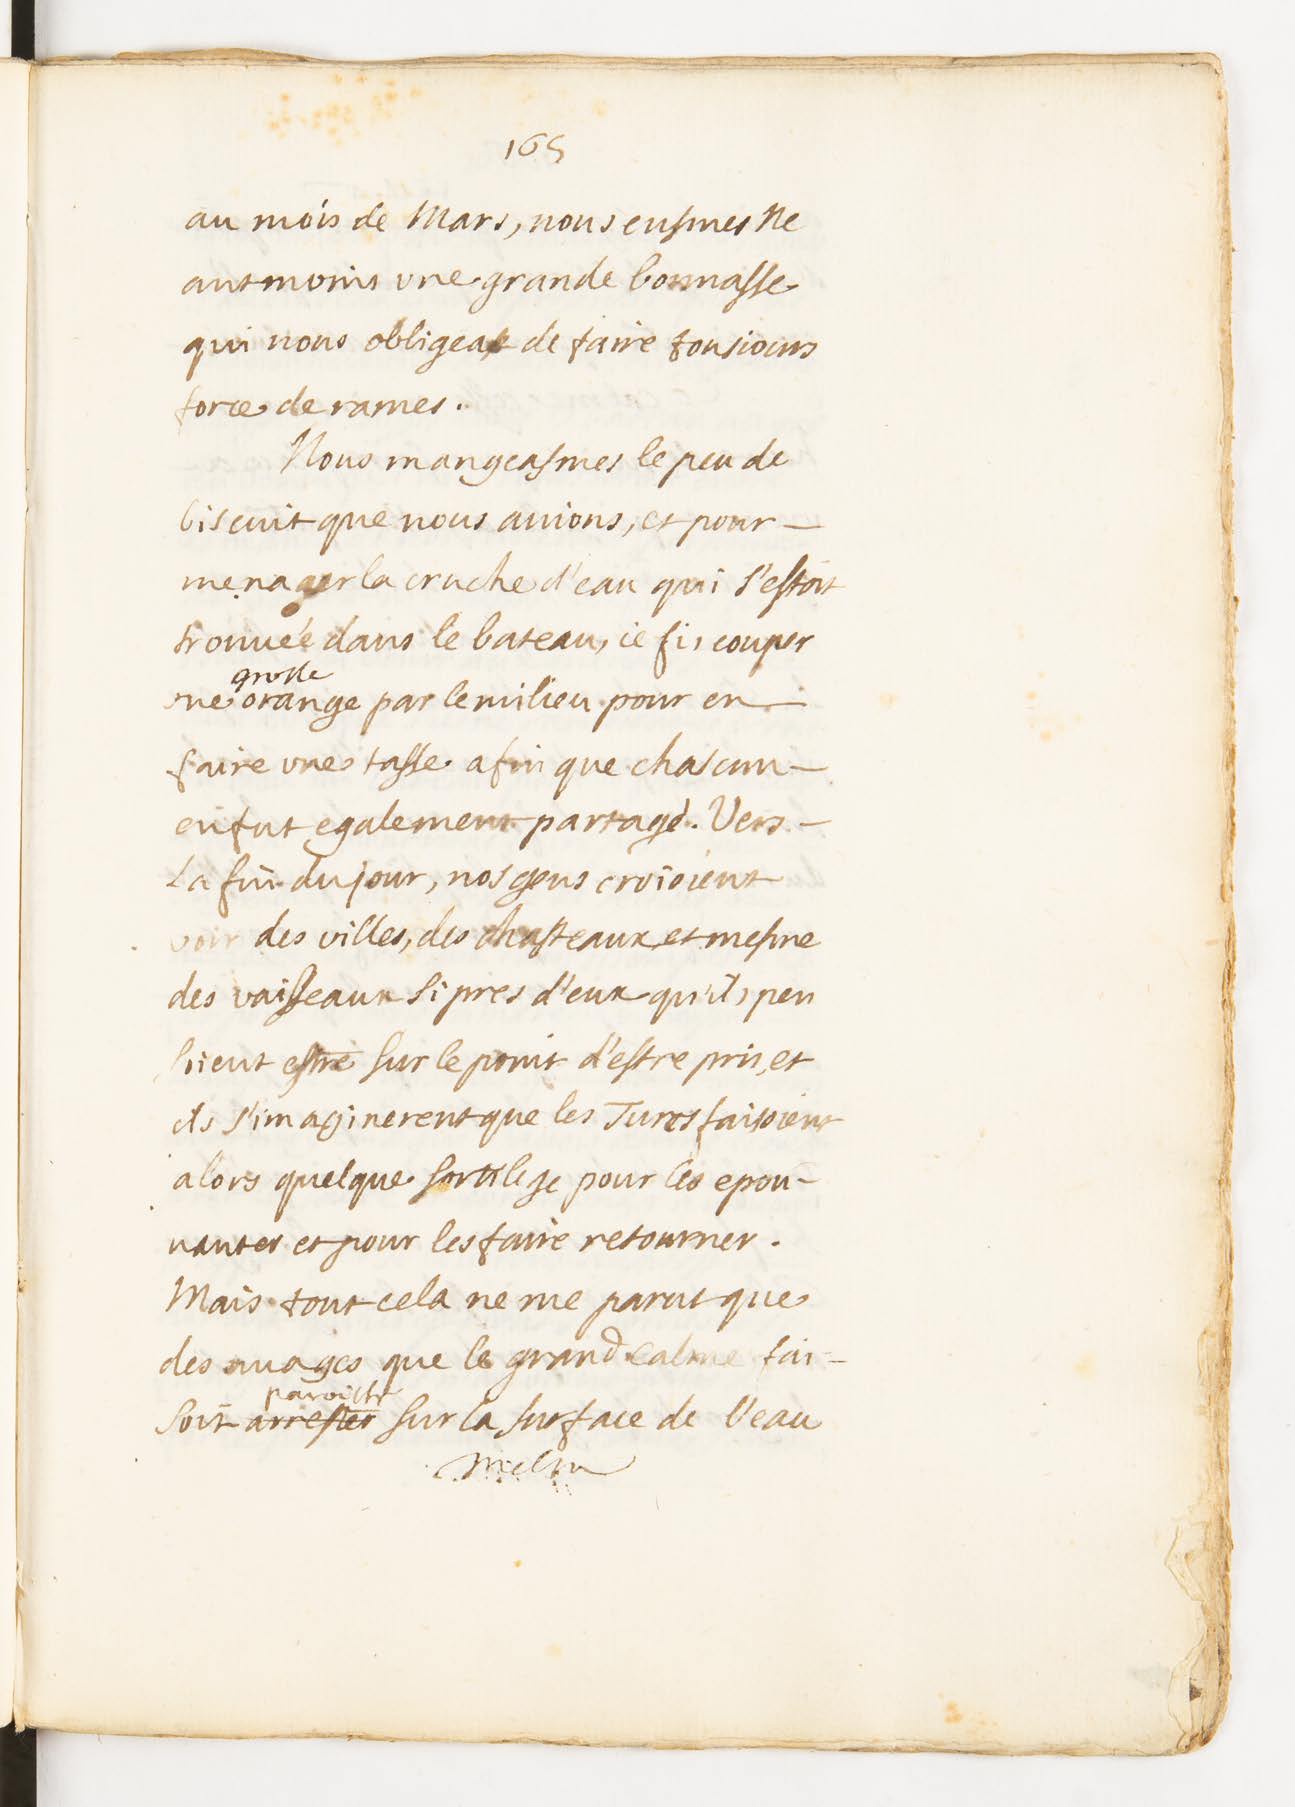 165
au mois de Mars, nous eusmes Ne
antmoins vne grande bonnasse
qui nous obligea de faire tousiours
force de rames.
Nous mangeasmes le peu de
biscuit que nous auions, et pour
menager la cruche d'eau qui s'estoit
trouuée dans le bateau, ie fis couper
grosse
vne orange par le milieu pour en
faire vne tasse afin que chascun
en fut egalement partagé. Vers
La fin du jour, nos gens croioient
voir des villes, des chasteaux, et mesme
des vaisseaux si pres d'eux qu'ils pen
sient estre sur le point d'estre pris, et
ils s'imaginerent que les Turcs faisoient
alors quelque sortilege pour les epou-
uanter et pour les faire retourner.
Mais tout cela ne me parut que
des nuages que le grand calme fai-
paroistre
soit arrester sur la surface de l'eau